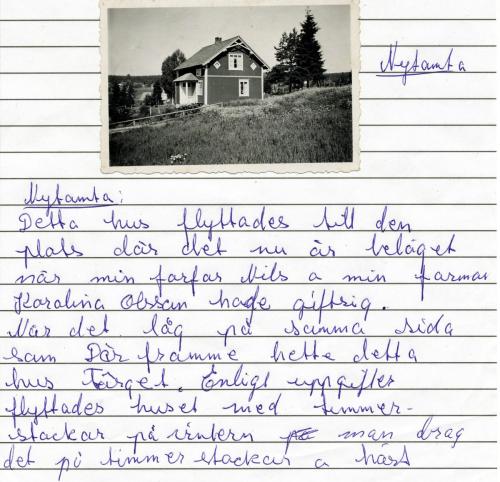 Nytomta
Nytomta:
Detta hus flyttades till den
plats där det nu är beläget
när min farfar Nils o min farmor
Karolina Olsson hade giftsig.
När det låg på samma sida
som Där framme hette detta
hus Torget. Enligt uppgifter
flyttades huset med timmer-
stockar på vintern man drog
det på timmerstockar o häst